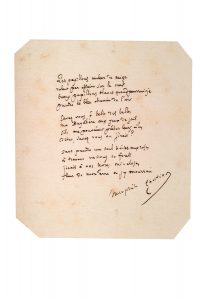 Les papillons couleur de neige
volent par essaims sur la mer
beaux papillons blancs quand pourrai-je
prendre le bleu chemin de l'air

Savez vous ô belle des belles
ma bayadère aux yeux de jais
s'ils me pouvaient prêter leurs ailes
dites, savez vous où j'irais

sans prendre un seul baiser aux roses
à travers vallons et forêts
j'irais à vos lèvres mi-closes
fleur de mon âme et j'y mourrais
Théophile Gautier